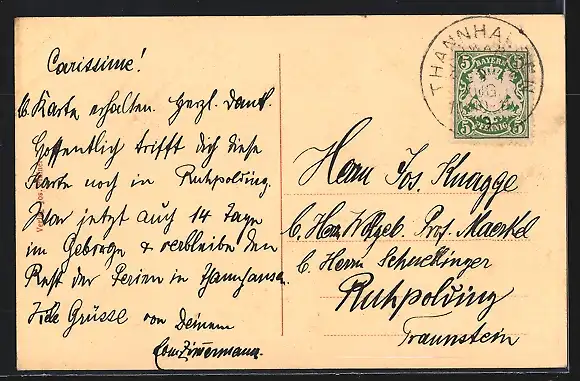 Carissime!
Lb. Karte erhalten. Herzl. Dank.
Hoffentlich trifft dich diese
Karte noch in Ruhpolding.
War jetzt auch 14 Tage
im Gebirge & verbleibe den
Rest der Ferien in Thannhausen.
Viele Grüsse von Deinem
Zimmermann.
THANNHAUSEN
BAYERN
5 5
5 PFENNIG 5
Herrn Jos. Knagge
b. Herrn Wolgeb. Prof. Maerkel
b. Herrn Schuellinger
Ruhpolding
Traunstein